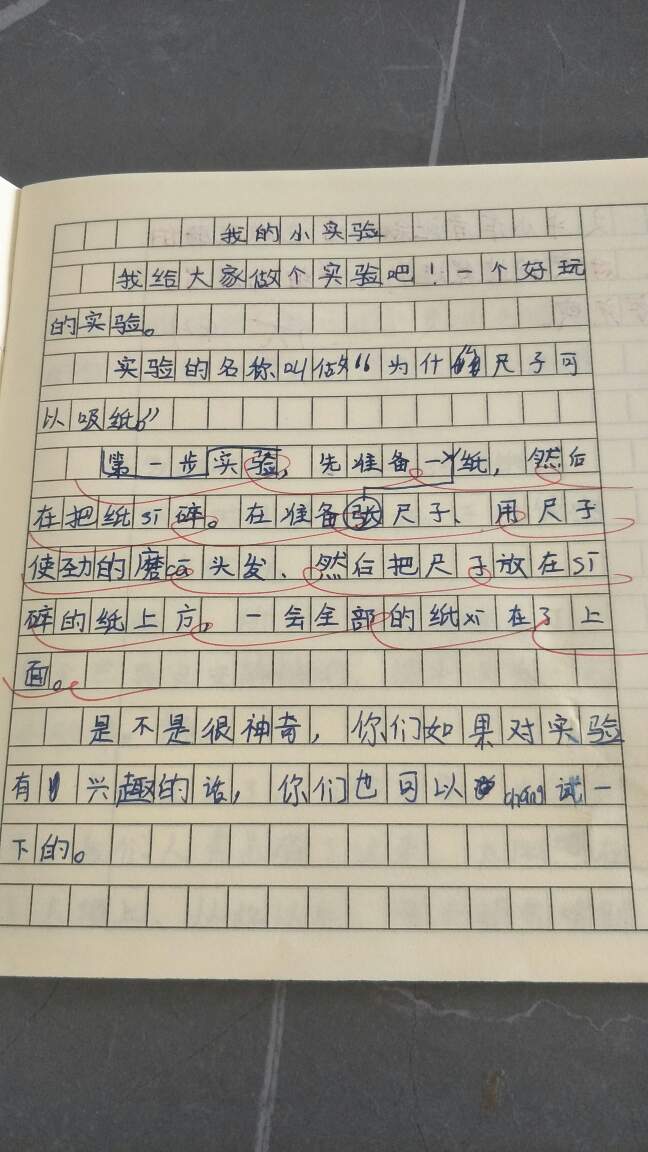 我的小实验
我给大家做个实验吧！一个好玩
的实验。
实验的名称叫做“为什 尺子可
以吸纸”
第一步实验，先准备一纸，然后
在把纸sī碎。在准备张尺子、用尺子
使劲的磨cā头发、然后把尺子放在sī
碎的纸上方。一会全部的纸xī在了上
面。
是不是很神奇，你们如果对实验
有兴趣的话，你们也可以cháng试一
下的。